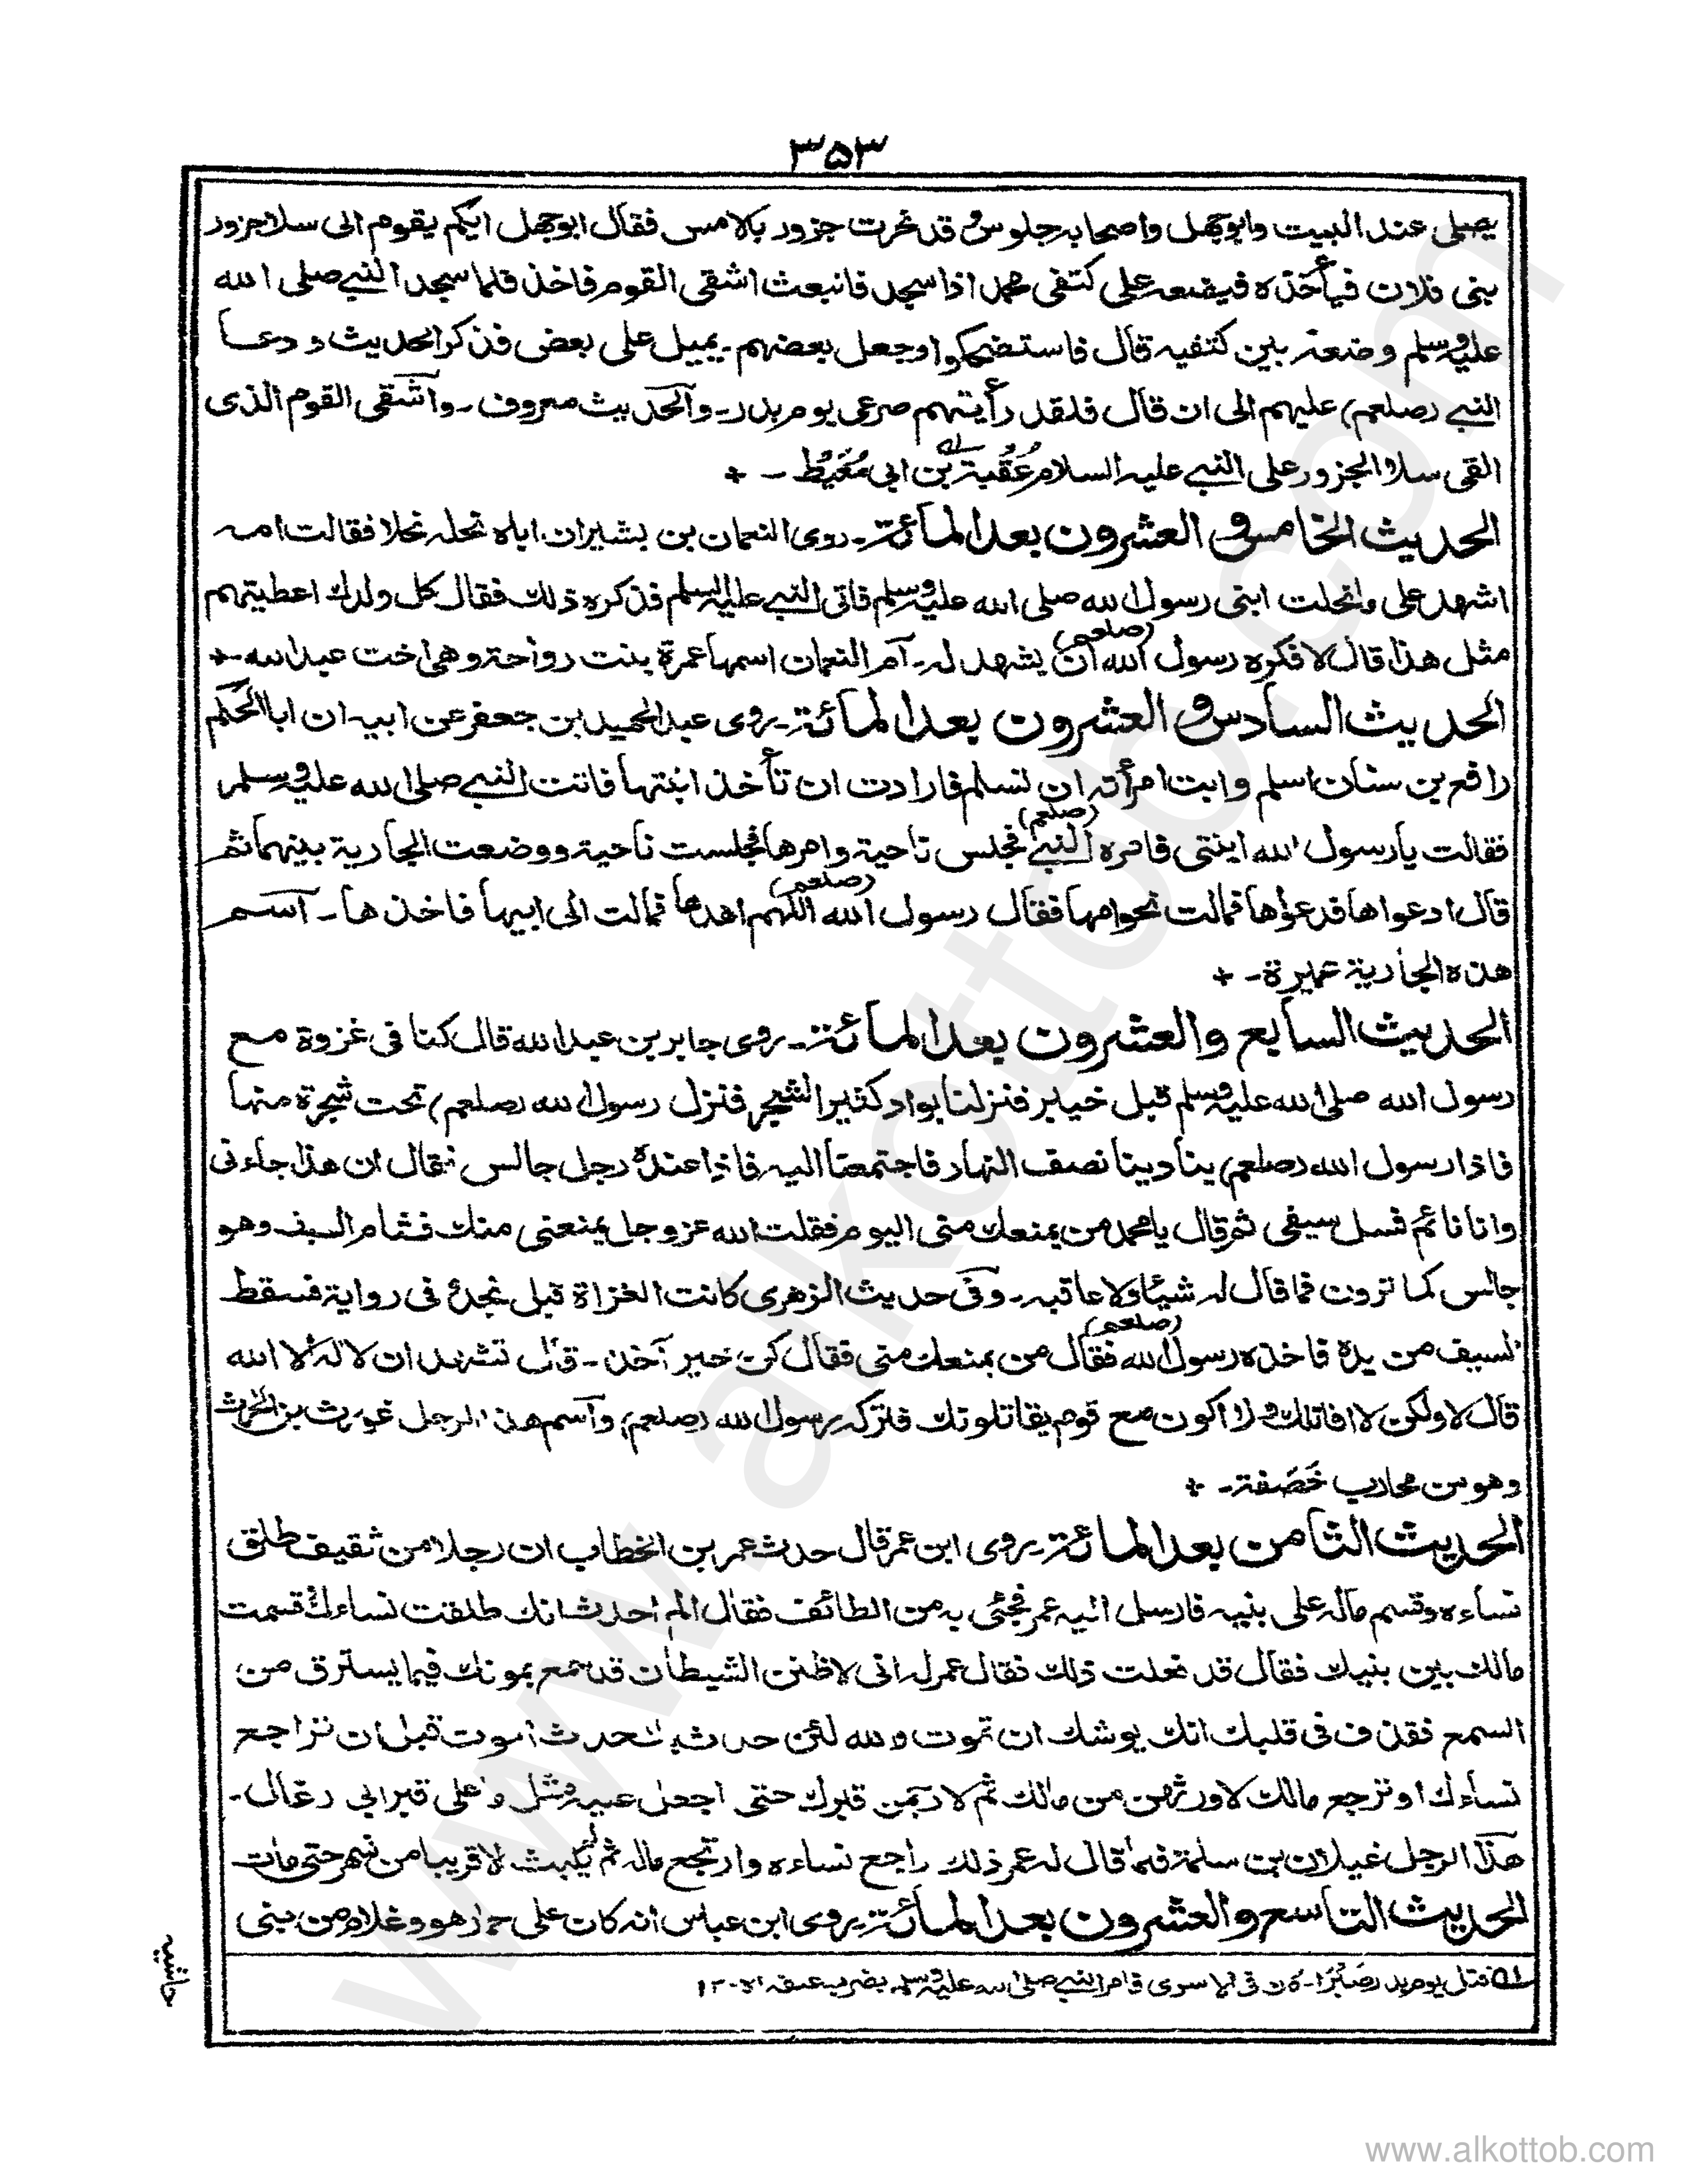 ٣٥٣
يصلى عند البيت وابوجهل واصحابه جلوس وقد نحرت جزور بالامس فقال ابوجهل ايكم يقوم الى سلاجزور
بنى فلان فيأخذه فيضعه على كتفى محمد اذا سجد فانبعث اشقى القوم فاخذ فلما سجد النبي صلى الله
عليه وسلم وضعه بين كتفيه قال فاستضحكوا وجعل بعضهم ـ يميل على بعض فذكر الحديث ودعا
النبي (صلعم) عليهم الى ان قال فلقد رأيتهم صرعى يوم بدر ـ والحديث معروف ـ واشقى القوم الذى
القى سلا الجزور على النبي عليه السلام عُقُبة بن ابى مُعَيط ـ +
الحديث الخامس والعشرون بعد المائة ـ روى النعمان بن بشير ان اباه نحله نحلا فقالت امه
اشهد على وانحلت ابنى رسول الله صلى الله عليه وسلم فاتى النبي عليه السلم فذكره ذلك فقال كل ولدك اعطيتهم
مثل هذا قال لا فكره رسول الله (صلعم) ان يشهد له ـ ام النعمان اسمها عمرة بنت رواحة وهى اخت عبدالله ـ +
الحديث السادس والعشرون بعد المائة ـ روى عبدالحميد بن جعفر عن ابيه ان اباالحكم
رافع بن سنان اسلم وابت امرأته ان تسلم فارادت ان تأخذ ابنتها فاتت النبي صلى الله عليه وسلم
فقالت يا رسول الله ابنتى فامره النبي (صلعم) فجلس ناحية وامرها فجلست ناحية ووضعت الجارية بينهما ثم
قال ادعواها فدعواها فمالت نحو امها فقال رسول الله (صلعم) اللهم اهدها فمالت الى ابيها فاخذها ـ اسم
هذه الجارية عميرة ـ +
الحديث السابع والعشرون بعد المائة ـ روى جابر بن عبدالله قال كنا فى غزوة مع
رسول الله صلى الله عليه وسلم قبل خيبر فنزلنا بواد كثير الشجر فنزل رسول الله (صلعم) تحت شجرة منها
فاذا رسول الله (صلعم) ينادينا نصف النهار فاجتمعنا اليه فاذا عنده رجل جالس فقال ان هذا جاءنى
وانا نائم فسل سيفى ثم قال يا محمد من يمنعك منى اليوم فقلت الله عزوجل يمنعنى منك فشام السيف وهو
جالس كما ترون فما قال له شيئا ولا عاقبه ـ وفى حديث الزهرى كانت الغزاة قبل نجد فى رواية فسقط
السيف من يده فاخذه رسول الله (صلعم) فقال من يمنعك منى فقال كن خير آخذ ـ قال تشهد ان لا اله الا الله
قال لا ولكن لا اقاتلك ولا اكون مع قوم يقاتلونك فتركه رسول الله (صلعم) واسم هذا الرجل غورث بن الحرث
وهو من محارب خَصَفة ـ +
الحديث الثامن بعد المائة ـ روى ابن عمر قال حدث عمر بن الخطاب ان رجلا من ثقيف طلق
نساءه وقسم ماله على بنيه فارسل اليه عمر فجئى به من الطائف فقال الم احدث انك طلقت نساءك وقسمت
مالك بين بنيك فقال قد فعلت ذلك فقال عمر له انى لاظنن الشيطان قد سمع بموتك فيما يسترق من
السمع فقذف فى قلبك انك يوشك ان تموت والله لئن حدث بك حدث الموت قبل ان تراجع
نساءك او ترجع مالك لاورثهن من مالك ثم لارجمن قبرك حتى اجعل عليه مثل وعلى قبر ابى رغال ـ
هذا الرجل غيلان بن سلمة فلما قال له عمر ذلك راجع نساءه وارتجع ماله ثم لم يلبث لا قريبا من شهر حتى مات
الحديث التاسع والعشرون بعد المائة ـ روى ابن عباس انه كان على حمار هو وغلام من بنى
حاشيه
ا قتل يوم بدر صَبْرًا ـ كان فى الاسرى فامر النبي صلى الله عليه وسلم بضرب عنقه ـ ١٢
www.alkottob.com
www.alkottob.com